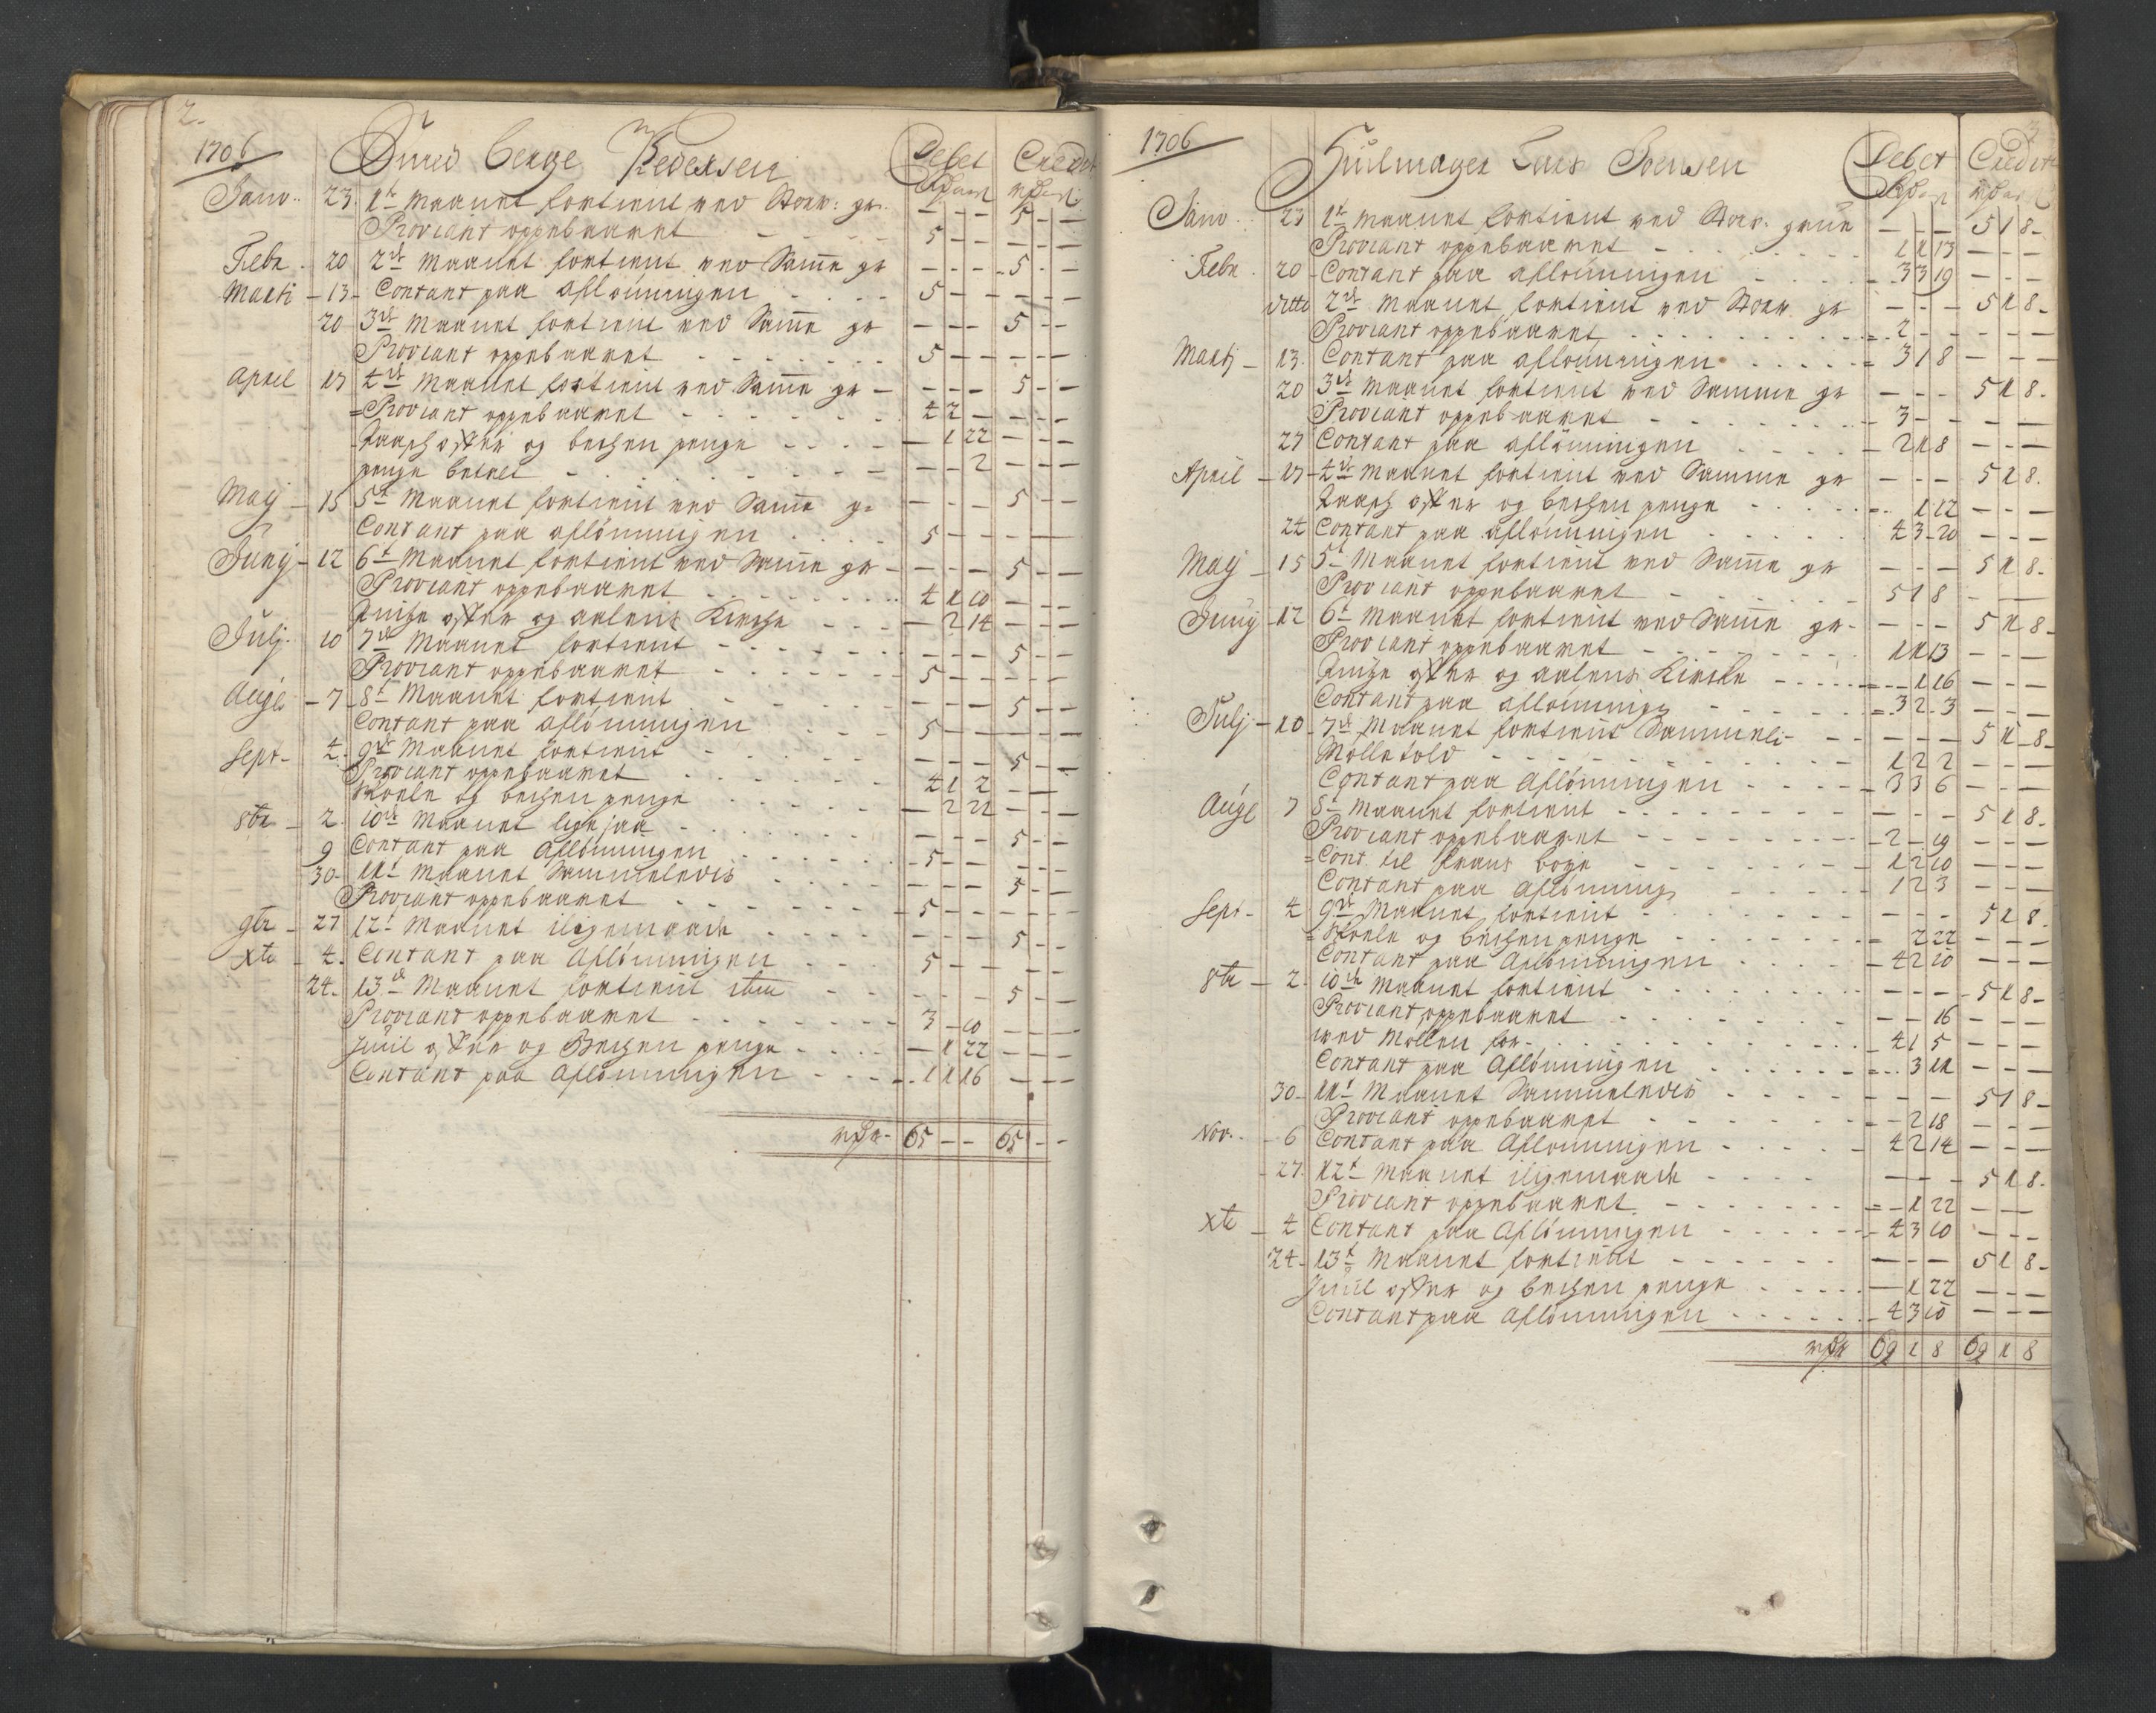 2.
1706 Berge Pedersen Debet Credit
Janv. 23. 1te Maanet fortient ved Storv: gr. - - - 5 - -
Proviant oppebaaret 5 - - - - -
Febr. 20 2de Maanet fortient ved Same gr - - - 5 - -
Marti - 13 - Contant paa afløningen 5 - - - - -
20 3de Maanet fortient ved Same gr - - - 5 - -
Proviant oppebaaret 5 - - - - -
April 17 4de Maanet fortient ved Same gr - - - 5 - -
Proviant oppebaaret 4 2 - - - -
offer og bechen penge - 1 22 - - -
penge betalt - - 2 - - -
Maij - 15 5t Maanet fortient ved Same gr - - - 5 - -
Contant paa afløningen 5 - - - - -
Junij - 12 6t Maanet fortient ved Same gr - - - - 5 - -
Proviant oppebaaret 4 1 10 - - -
offer og aalens Kirche - 2 14 - - -
Julj. 10 7de Maanet fortient - - - 5 - -
Proviant oppebaaret 5 - - - - -
Aug. - 7 8t Maanet fortient - - - 5 - -
Contant paa afløningen 5 - - - - -
Sept - 4. 9de Maanet fortient - - - 5 - -
Proviant oppebaaret 4 1 2 - - -
Skoele og bechen penge - 2 22 - - -
8br - 2. 10de Maanet lige saa - - - 5 - -
9 Contant paa Afløningen 5 - - - - -
30 - 11t Maanet Sammeledis - - - 5 - -
Proviant oppebaaret 5 - - - - -
9br - 27 12t Maanet iligemaade - - - 5 - -
Xbr - 4. Contant paa Afløningen 5 - - - - -
24 - 13de Maanet fortient item - - - 5 - -
Proviant oppebaaret 3 - 10 - - -
Juul offer og Bechen penge - 1 22 - - -
Contant paa Afløningen 1 1 16 - - -
65 - - 65 - -
3
1706 Hiulmager Lars Svensen Debet Credit
Janv. 23 1te Maanet fortient ved Storv. grue - - - 5 1 8 -
Proviant oppebaaret 1 1 13 - - -
Febr. 20 - Contant paa afløningen 3 3 19 - - -
ditto 2de Maanet fortient ved Storv gr - - - 5 1 8 -
Proviant oppebaaret 2 - - - - -
Martj - 13. Contant paa afløningen 3 1 8 - - -
20 3de Maanet fortient ved Samme gr - - - 5 1 8.
Proviant oppebaaret 3 - - - - -
27 Contant paa afløningen 2 1 8 - - -
April - 17 - 4de Maanet fortient ved Samme gr - - - 5 1 8.
offer og bechen penge - 1 12 - - -
24 Contant paa afløningen 4 3 20 - - -
Maij - 15 5t Maanet fortient ved Same gr - - - 5 1 8.
Proviant oppebaaret 5 1 8 - - -
Junij - 12 6t Maanet fortient ved Same gr - - - - 5 1 8 -
Proviant oppebaaret 1 1 13 - - -
offer og aalens Kirche - 1 16 - - -
Contant paa afløning 3 2 3 - - -
Julj - 10 7de Maanet fortient Sammeli - - - 5 1 8 -
Molletold 1 2 2 - - -
Contant paa Afløningen 3 3 6 - - -
Aug. 7 8t Maanet fortient - - - 5 1 8 -
Proviant oppebaaret 2 - 19 - - -
Cont. til 1 2 10 - - -
Contant paa Afløning 1 2 3 - - -
Sept - 4 9de Maanet fortient - - - 5 1 8 -
Skoele og bechen penge - 2 22 - - -
Contant paa Afløningen 4 2 10 - - -
8br - 2. 10de Maanet fortient - - - 5 1 8 -
Proviant oppebaaret - - 16 - - -
ved Mollen for 4 1 5 - - -
Contant paa Afløningen - 3 11 - - -
30 - 11t Maanet Sammeledis - - - 5 1 8 -
Proviant oppebaaret - 2 18 - - -
Nov. - 6 Contant paa Afløningen 4 2 14 - - -
27. 12t Maanet iligemaade - - - 5 1 8.
Proviant oppebaaret - 1 22 - - -
Xbr - 4 Contant paa Afløningen 4 3 10 - - -
24 - 13t Maanet fortient - - - 5 1 8 -
Juul offer og bechen penge - 1 22 - - -
Contant paa Afløningen 4 3 10 - - -
69 1 8 69 1 8